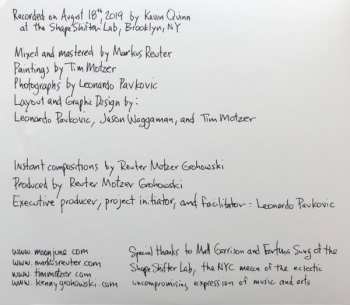 Recorded on August 18th 2019 by Kevin Quinn
at the ShapeShifter Lab, Brooklyn, NY
Mixed and mastered by Markus Reuter
Paintings by Tim Motzer
Photographs by Leonardo Pavkovic
Layout and Graphic Design by:
Leonardo Pavkovic, Jason Waggaman, and Tim Motzer
Instant compositions by Reuter Motzer Grohowski
Produced by Reuter Motzer Grohowski
Executive producer, project initiator, and facilitator: Leonardo Pavkovic
www.moonjune.com
www.markusreuter.com
www.timmotzer.com
www.kennygrohowski.com
Special thanks to Matt Garrison and Fortuna Sung at the
ShapeShifter Lab, the NYC mecca of the eclectic
uncompromising expression of music and arts